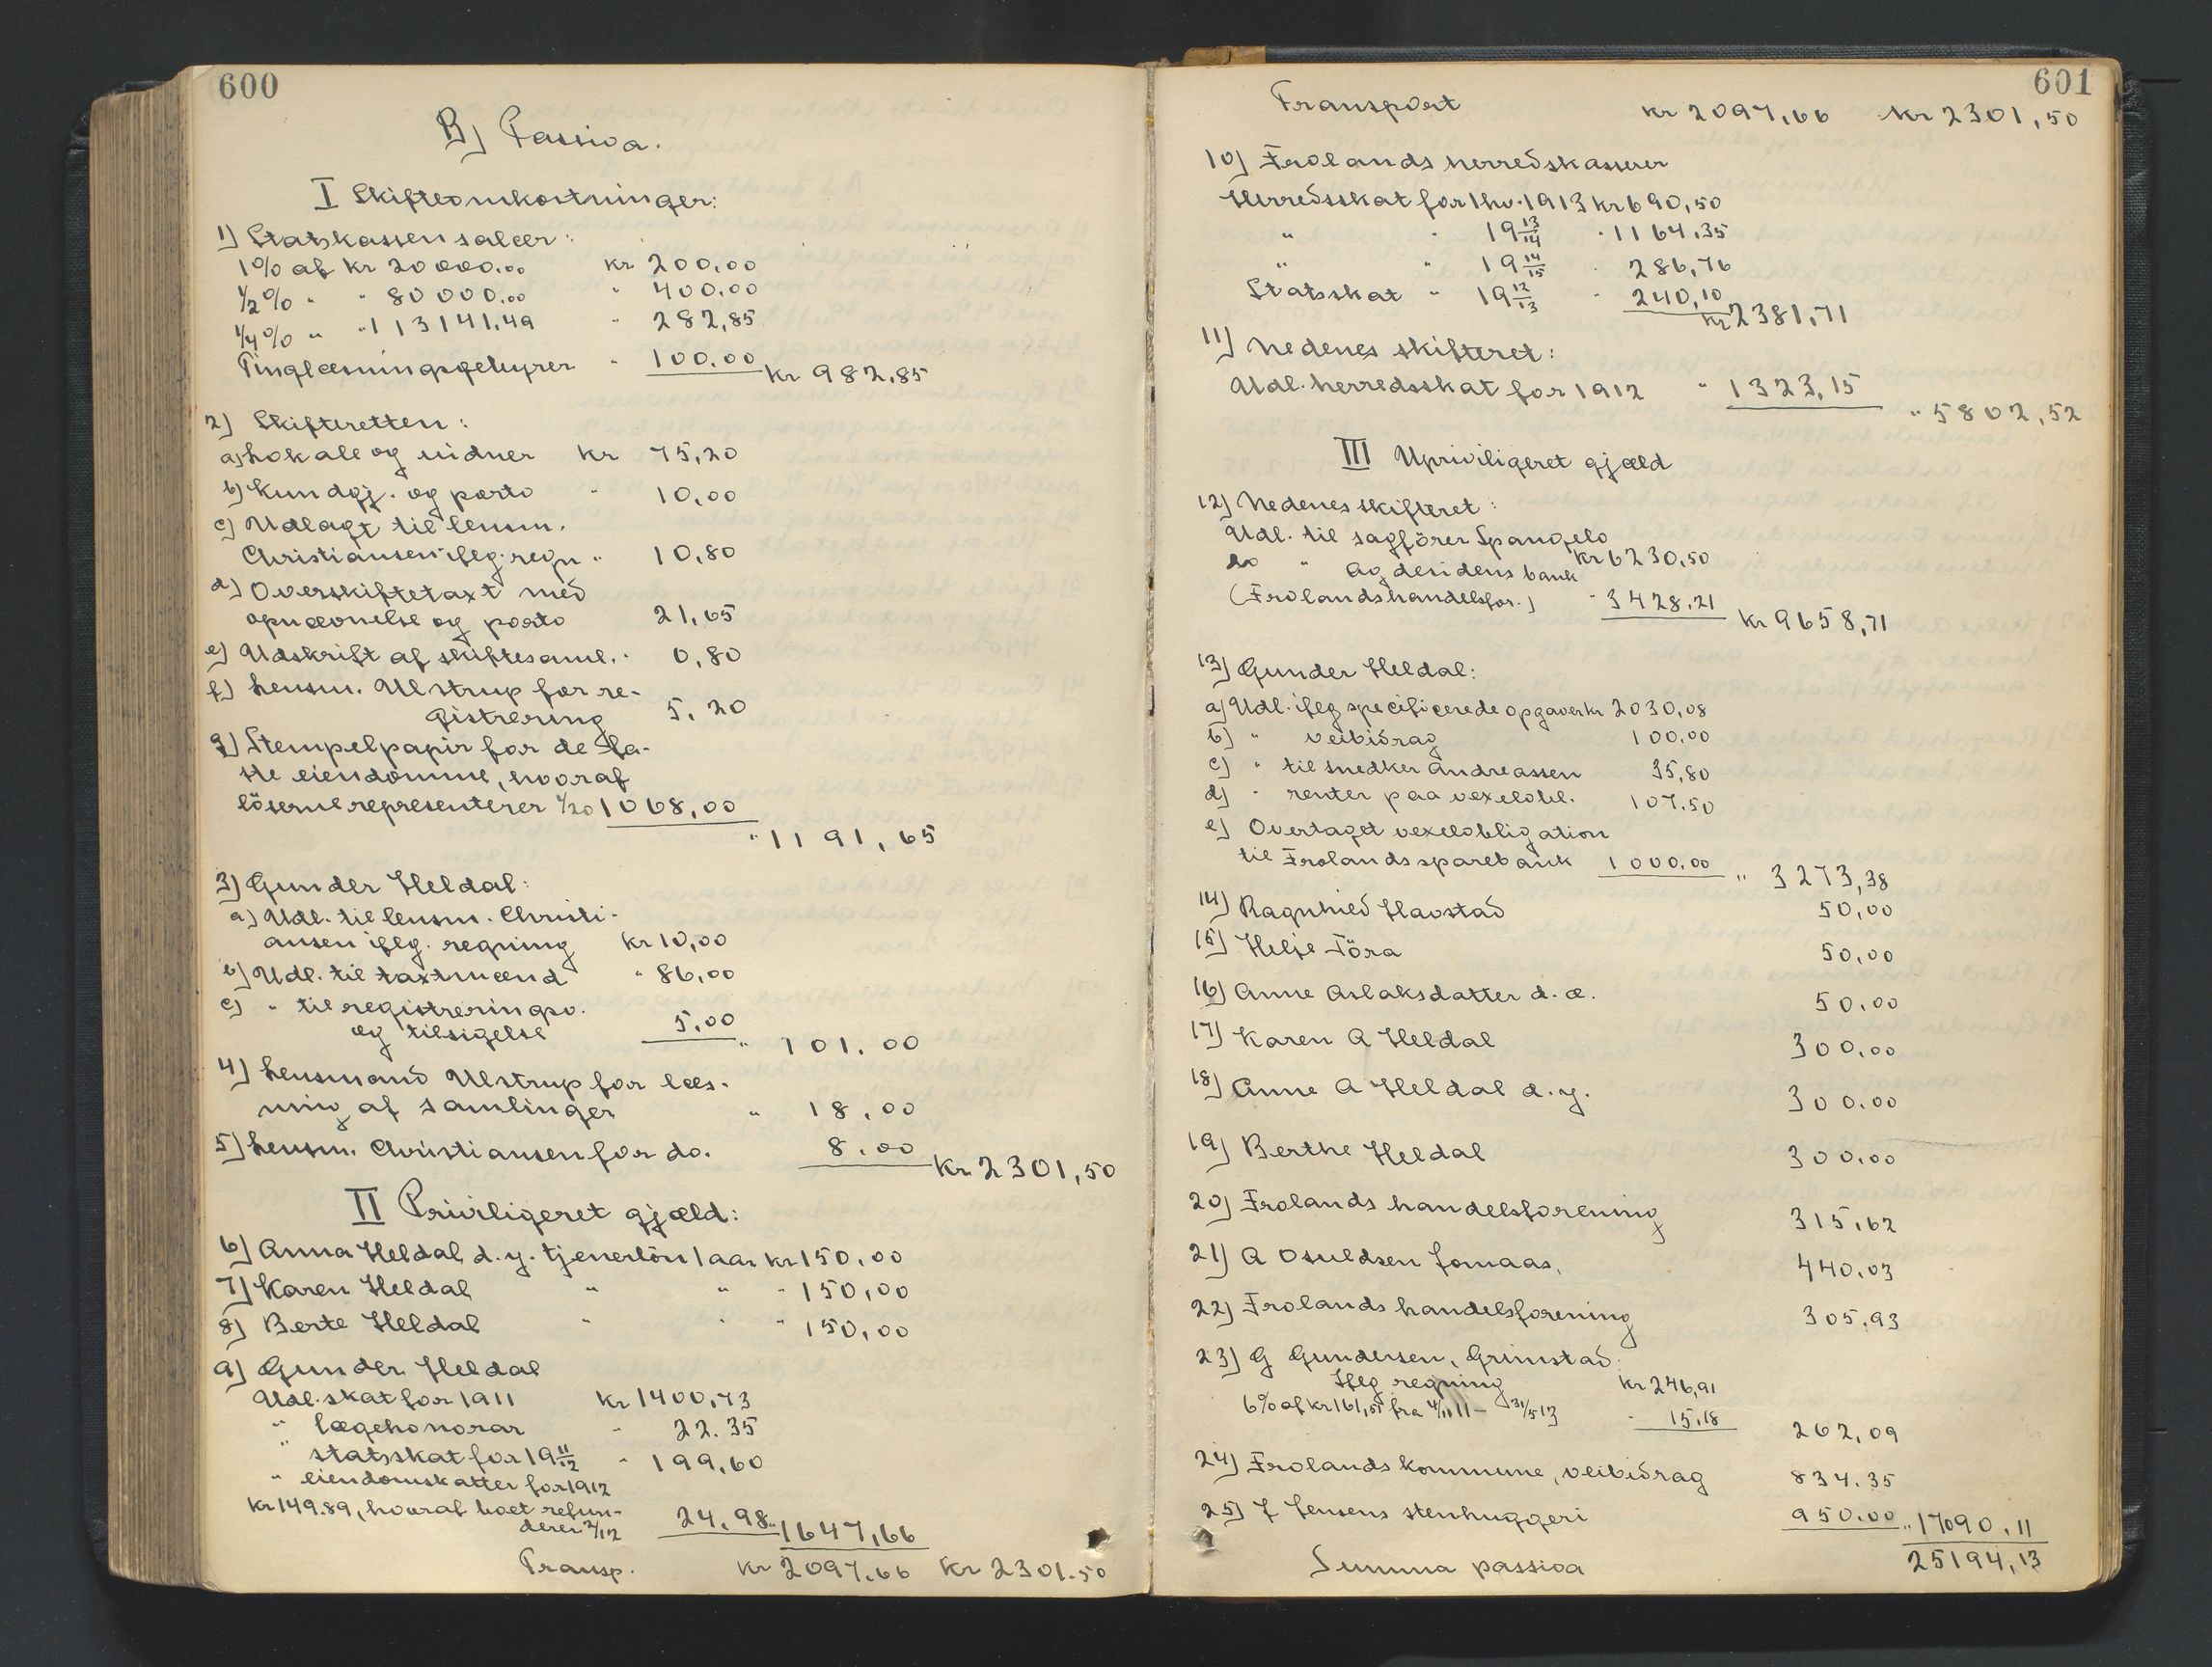 600
B) Passiva.
I Skifteomkostninger:
1) Statskassen salær:
1% af kr 20000.00 kr 200.00
1/2% " " 80000.00 " 400.00
1/4% " " 113141.49 " 282,85
Tinglæsningsgebyrer " 100.00 kr 982,85
2) Skifteretten:
a) Lokale og vidner kr 75,20
b) Kundgj. og porto " 10,00
c) Udlagt til lensm.
Christiansen iflg. regn " 10,80
d) Overskiftetaxt med
opnævnelse og porto 21,65
e) Udskrift af skiftesaml. " 0,80
f) Lensm. Ulstrup for re-
gistrering 5,20
g) Stempelpapir for de fa-
ste eiendomme, hvoraf
lösørne representerer 1/20 1068,00
" 1191,65
3) Gunder Heldal:
a) Udl. til lensm. Christi-
ansen iflg. regning kr 10,00
b) Udl. til taxtmænd " 86,00
c) " til registreringsv.
og tilsigelse 5.00
" 101.00
4) Lensmand Ulstrup for læs-
ning af samlinger " 18,00
5) Lensm. Christiansen for do. 8.00
kr 2301,50
II Priviligeret gjæld:
6) Anna Heldal d.y. tjenerlön 1 aar kr 150,00
7) Karen Heldal " " " 150,00
8) Berte Heldal " " " 150,00
9) Gunder Heldal
Udl. skat for 1911 kr 1400,73
" lægehonorar " 22.35
" statsskat for 19 11/12 " 199,60
" eiendomskatter for 1912
kr 149.89, hvoraf boet refun-
derer 2/12 24,98 " 1647,66
Transp. kr 2097.66 kr 2301.50
601
Transport kr 2097,66 kr 2301,50
10) Frolands herredskasserer
Herredsskat for 1 hv. 1913 kr 690,50
" " 19 13/14 " 1164.35
" " 19 14/15 " 286,76
Statsskat " 19 12/13 " 240,10
kr 2381,71
11) Nedenes skifteret:
Udl. herredsskat for 1912 " 1323,15
" 5802,52
III Upriviligeret gjæld
12) Nedenes skifteret:
Udl. til sagförer Spangelo
kr 6230,50
do " Agdesidens bank
(Frolands handelsfor.) " 3428,21
kr 9658,71
13) Gunder Heldal:
a) Udl. iflg specificerede opgaver kr 2030,08
b) " veibidrag 100.00
c) " til snedker Andreassen 35,80
d) " renter paa vexelobl. 107.50
e) Overtaget vexelobligation
til Frolands sparebank 1000.00 " 3273,38
14) Ragnhild Havstad 50,00
15) Helje Töra 50,00
16) Anne Aslaksdatter d.æ. 50.00
17) Karen A Heldal 300.00
18) Anne A Heldal d.y. 300.00
19) Berthe Heldal 300.00
20) Frolands handelsforening 315,62
21) A Osuldsen Jomaas, 440.03
22) Frolands handelsforening 305.93
23) G Gundersen, Grimstad:
Iflg regning kr 246,91
6% af kr 161,51 fra 4/11 11 - 31/5 13 " 15.18
262,09
24) Frolands kommune, veibidrag 834.35
25) J Jensens stenhuggeri 950.00 " 17090.11
Summa passiva 25194,13